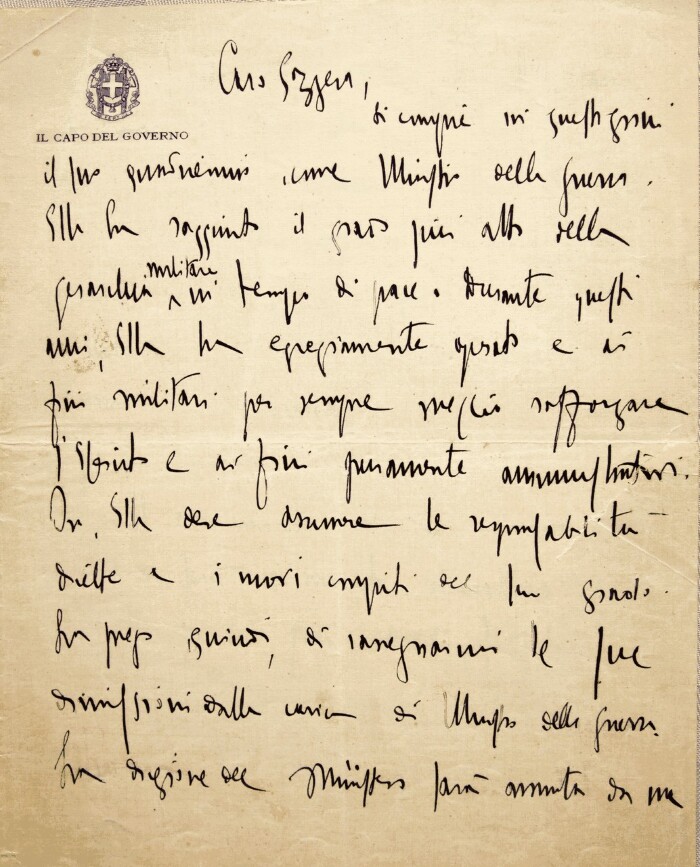 IL CAPO DEL GOVERNO
Caro Gazzera,
si compie in questi giorni
il suo quadriennio come Ministro della Guerra.
Ella ha raggiunto il grado più alto della
gerarchia militare in tempo di pace. Durante questi
anni, Ella ha egregiamente operato e ai
fini militari per sempre meglio rafforzare
l'Esercito e ai fini puramente amministrativi.
Ora, Ella deve assumere le responsabilità
dirette e i nuovi compiti del suo grado.
La prego quindi, di rassegnarmi le sue
dimissioni dalla carica di Ministro della Guerra.
La direzione del Ministero sarà assunta da me